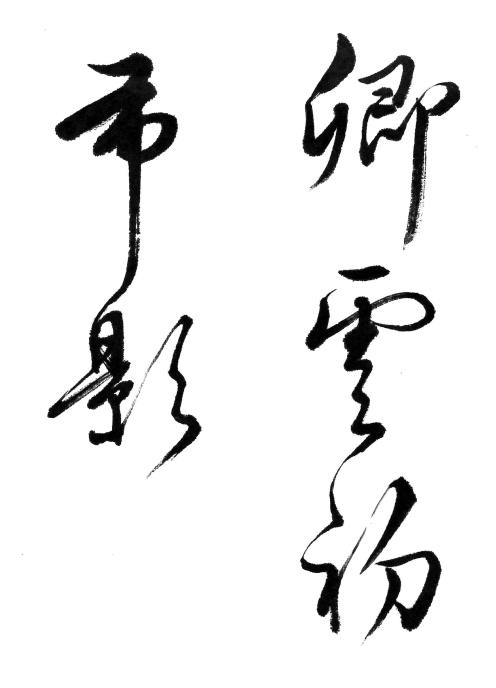 卿雲初
帀影